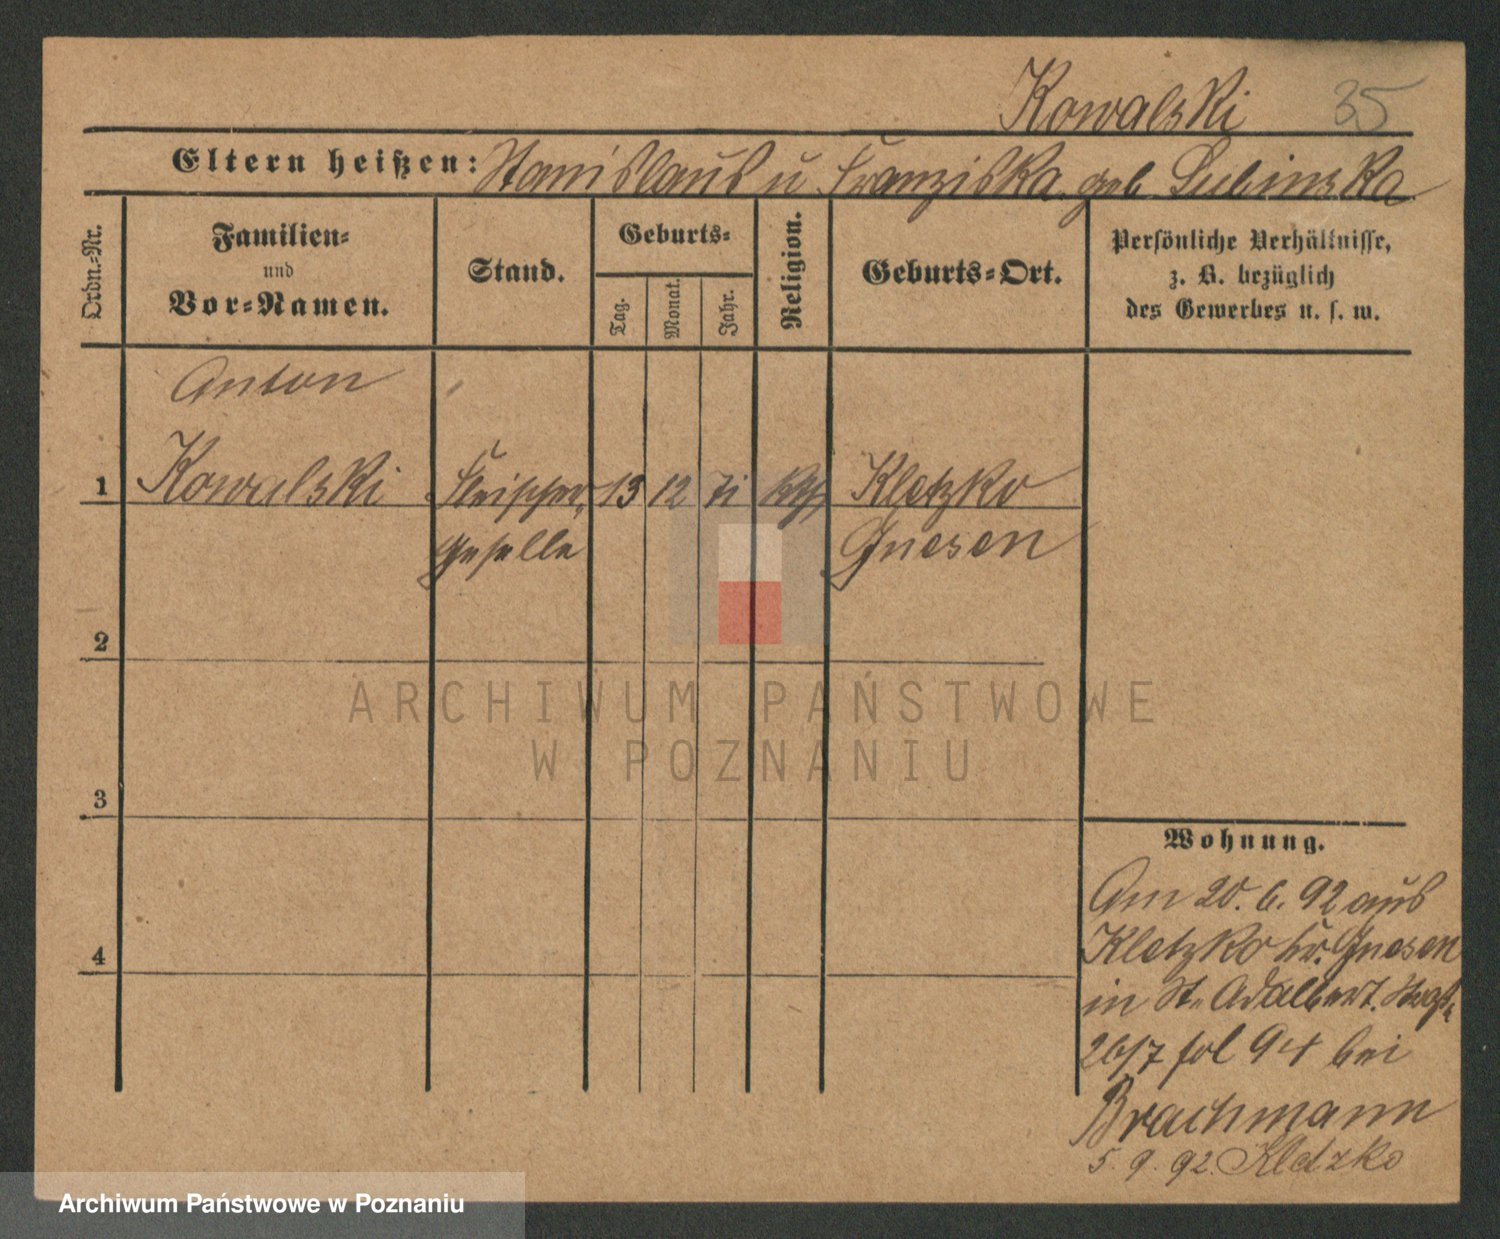 Kowalski 35
Eltern heißen: Stanislaus u Franziska geb Lubinska
Ordn.-Nr.
Familien-
und
Vor-Namen.
Stand.
Geburts-
Tag.
Monat.
Jahr.
Religion.
Geburts-Ort.
Persönliche Verhältnisse,
z. B. bezüglich
des Gewerbes u. s. w.
Anton
1 Kowalski Fleischer 13 12 71 kth Kletzko
geselle Gnesen
2
3
4
Wohnung.
Am 20. 6. 92 aus
Kletzko Kr. Gnesen
in St. Adalbert.
26/7 fol 94 bei
Brachmann
5. 9. 92. Kletzko
ARCHIWUM PAŃSTWOWE
W POZNANIU
Archiwum Państwowe w Poznaniu